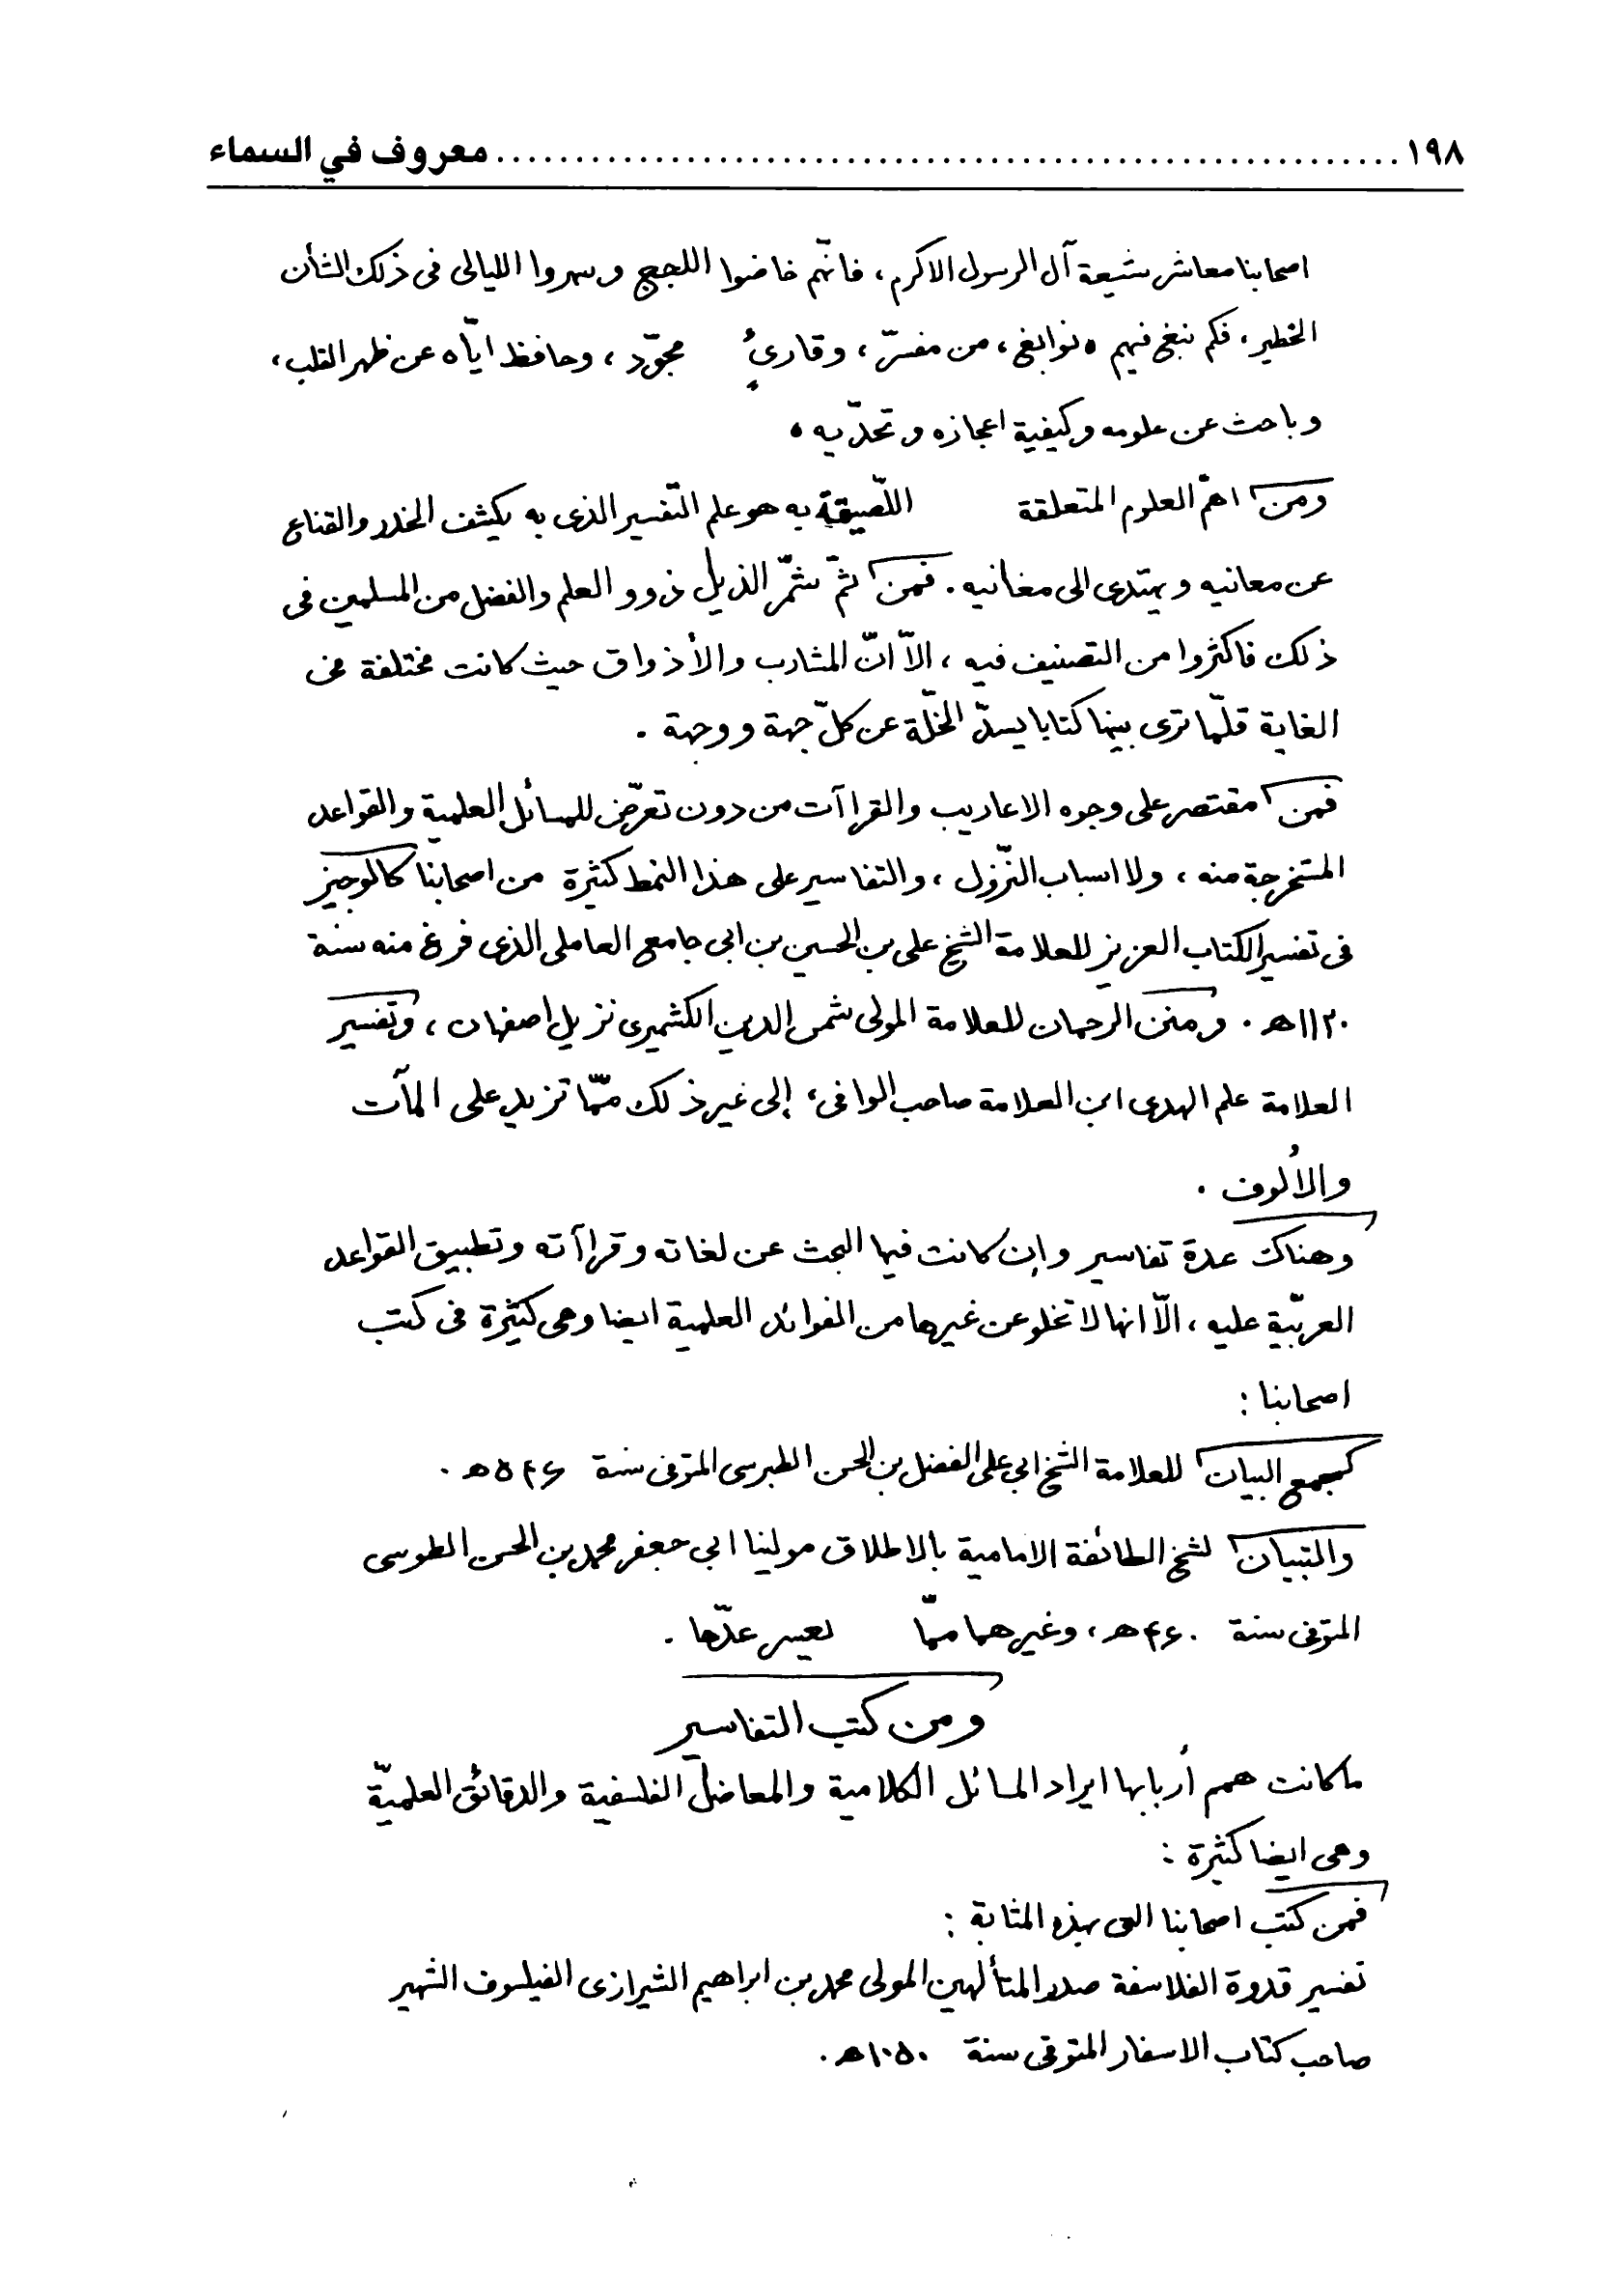 ١٩٨ ........ معروف في السماء
اصحابنا معاشر شيعة آل الرسول الاكرم، فانّهم خاضوا اللجج وسهروا الليالى فى ذلك الشأن
الخطير، فكم نبغ فيهم نوابغ، من مفسرّ، وقارئٍ مجوّد، وحافظ ايّاه عن ظهر القلب،
وباحث عن علومه وكيفية اعجازه وتحدّيه.
ومن اهمّ العلوم المتعلقة اللّصيقة به هو علم التّفسير الذى به يكشف الخدر والقناع
عن معانيه ويهتدى الى مغانيه. فمن ثمّ شمّر الذيل ذوو العلم والفضل من المسلمين فى
ذلك فاكثروا من التصنيف فيه، الاّ انّ المشارب والأذواق حيث كانت مختلفة فى
الغاية قلّما ترى بينها كتابا يسدّ الخلّة عن كلّ جهة ووجهة.
فمن مقتصر على وجوه الاعاريب والقراآت من دون تعرّض للمسائل العلمية والقواعد
المستخرجة منه، ولا اسباب النّزول، والتفاسير على هذا النمط كثيرة من اصحابنا كالوجيز
فى تفسير الكتاب العزيز للعلامة الشيخ على بن الحسين بن ابى جامع العاملى الذى فرغ منه سنة
١١٢٠هـ. ومنن الرحمان للعلامة المولى شمس الدين الكشميرى نزيل اصفهان، وتفسير
العلامة علم الهدى ابن العلامة صاحب الوافى، إلى غير ذلك ممّا تزيد على المآت
والاُلوف.
وهناك عدة تفاسير وإن كانت فيها البحث عن لغاته وقراآته وتطبيق القواعد
العربيّة عليه، الاّ انها لا تخلو عن غيرها من الفوائد العلمية ايضا وهى كثيرة فى كتب
اصحابنا:
كمجمع البيان للعلامة الشيخ ابى على الفضل بن الحسن الطبرسى المتوفى سنة ۵۴۶هـ.
والتبيان لشيخ الطائفة الامامية بالاطلاق مولينا ابى جعفر محمد بن الحسن الطوسى
المتوفى سنة ۴۶۰هـ، وغيرهما ممّا يعسر عدّها.
ومن كتب التفاسير
ما كانت همم أربابها ايراد المسائل الكلامية والمعاضل الفلسفية والدقائق العلميّة
وهى ايضا كثيرة:
فمن كتب اصحابنا التى بهذه المثابة:
تفسير قدوة الفلاسفة صدر المتألهين المولى محمد بن ابراهيم الشيرازى الفيلسوف الشهير
صاحب كتاب الاسفار المتوفى سنة ١٠۵٠هـ.